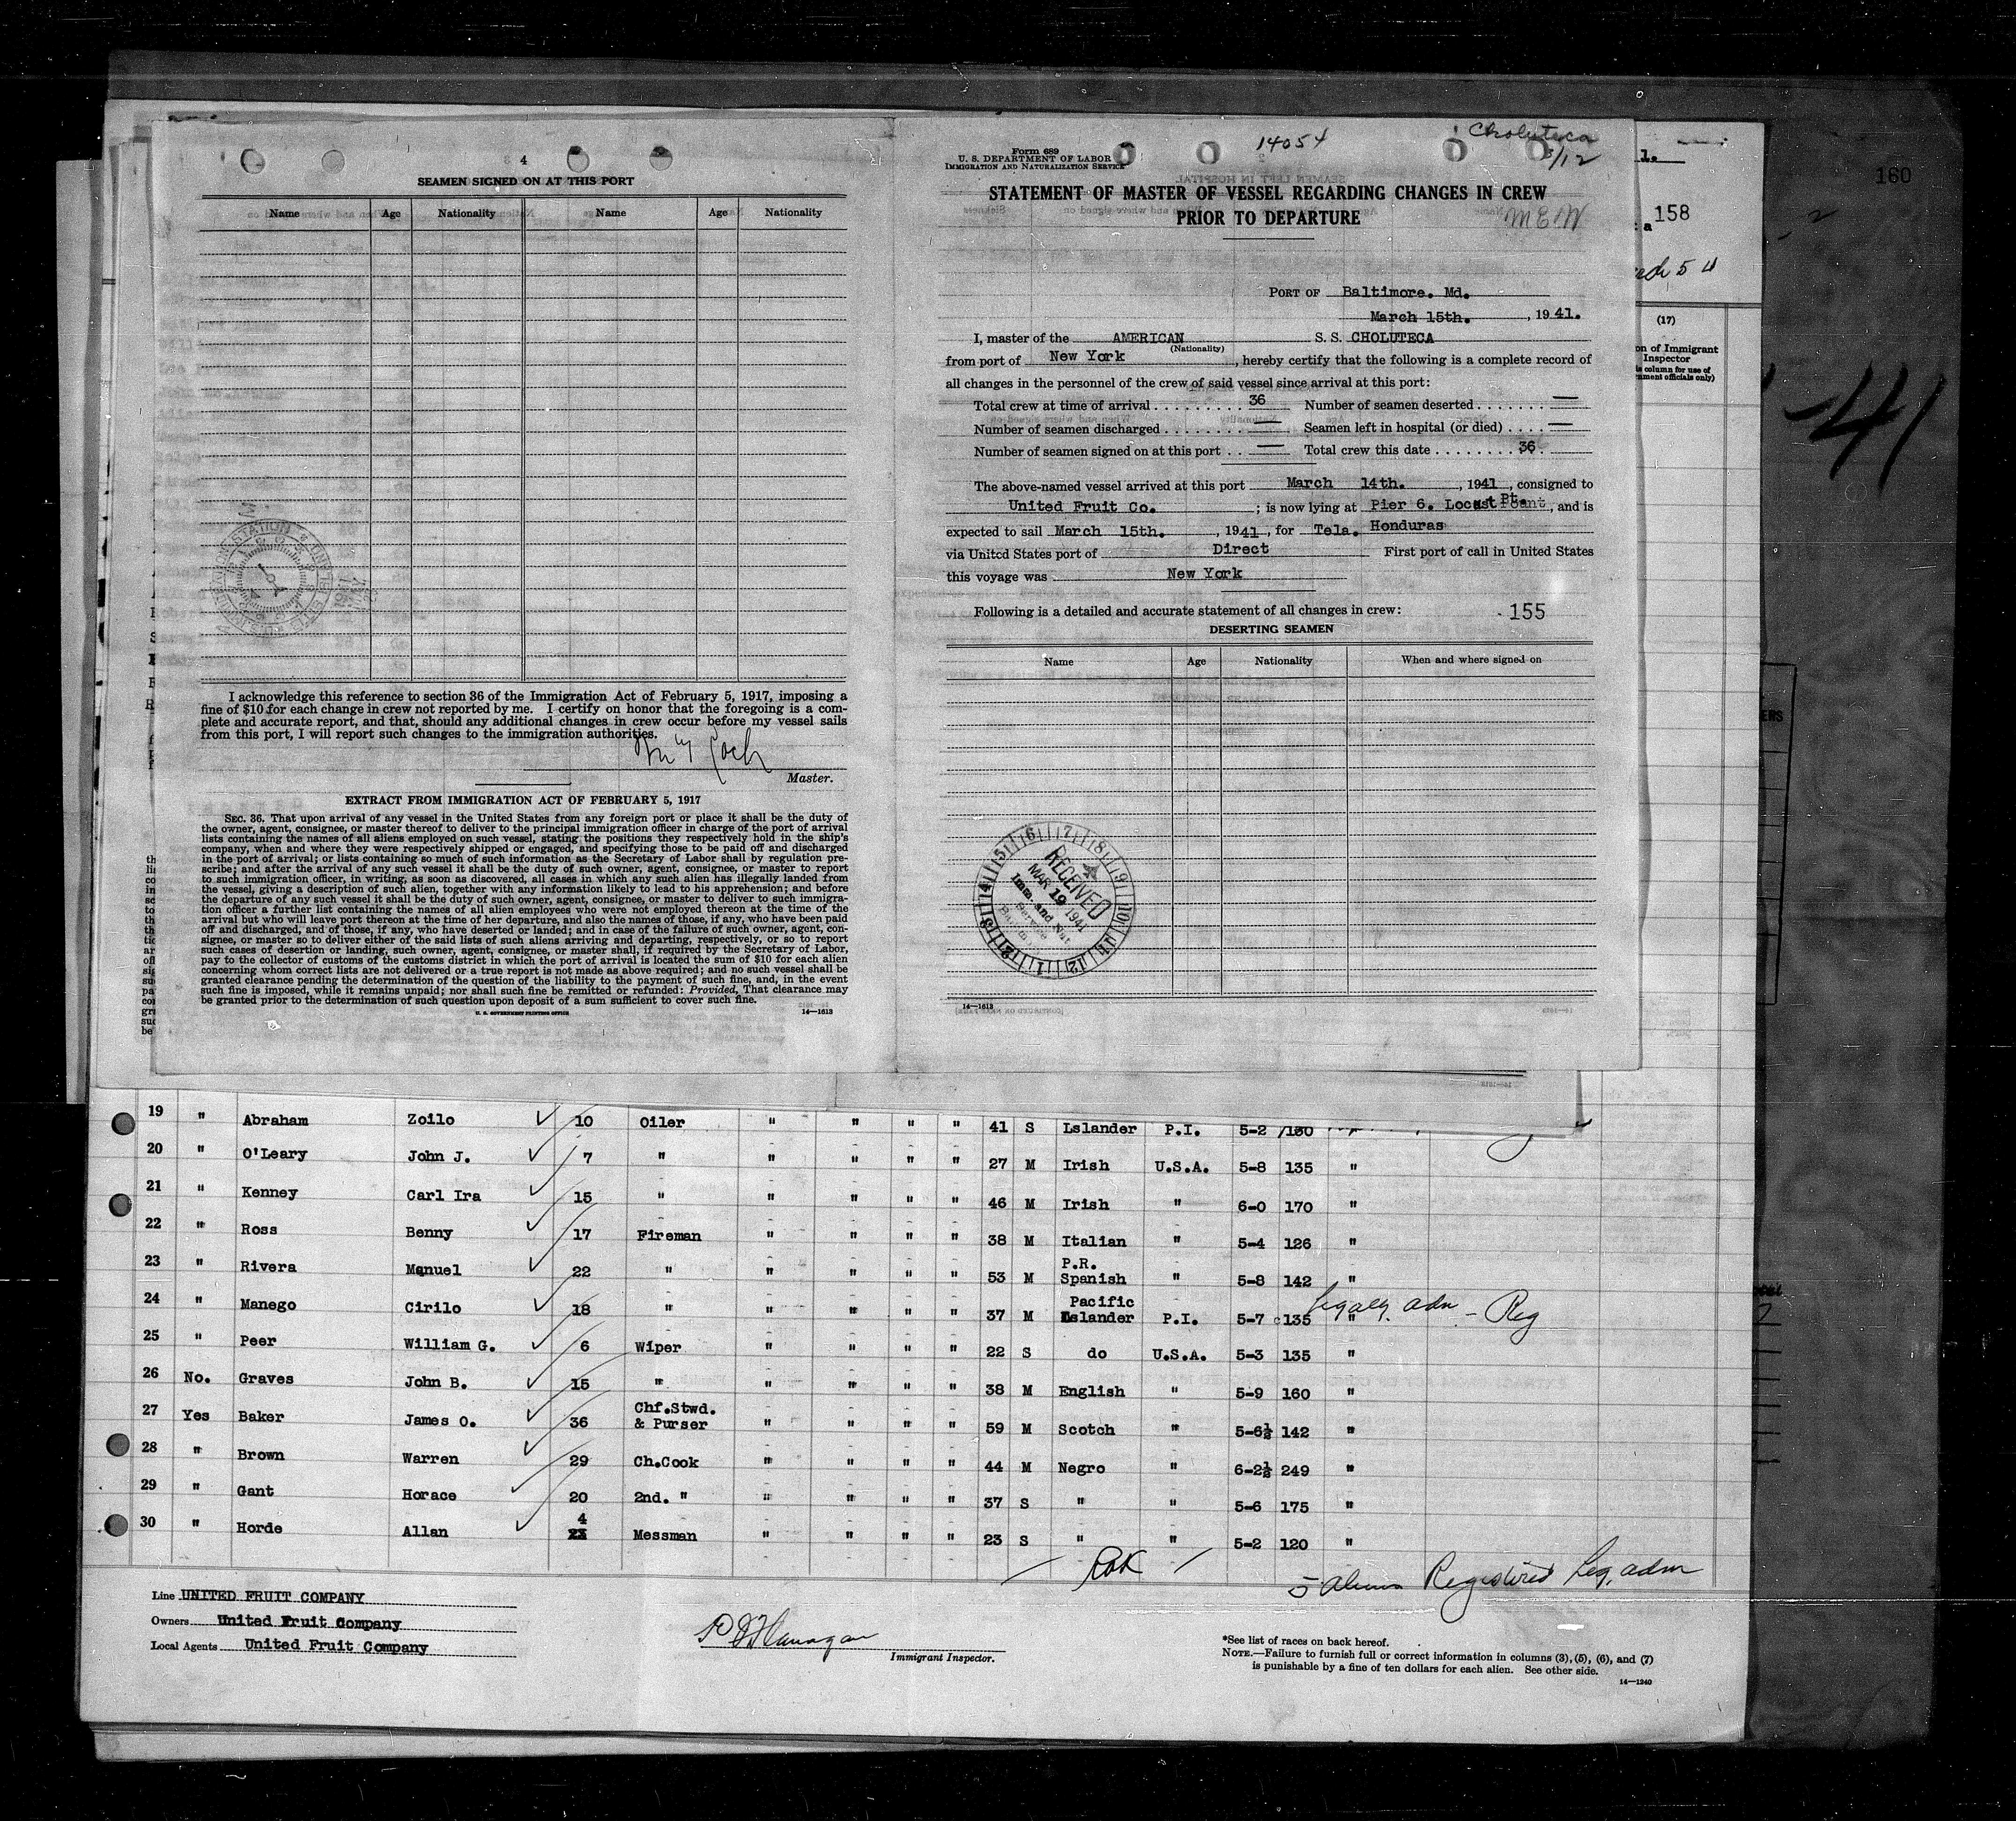 4
SEAMEN SIGNED ON AT THIS PORT
Name Age Nationality Name Age Nationality
I acknowledge this reference to section 36 of the Immigration Act of February 5, 1917, imposing a
fine of $10 for each change in crew not reported by me. I certify on honor that the foregoing is a com-
plete and accurate report, and that, should any additional changes in crew occur before my vessel sails
from this port, I will report such changes to the immigration authorities.
Master.
EXTRACT FROM IMMIGRATION ACT OF FEBRUARY 5, 1917
SEC. 36. That upon arrival of any vessel in the United States from any foreign port or place it shall be the duty of
the owner, agent, consignee, or master thereof to deliver to the principal immigration officer in charge of the port of arrival
lists containing the names of all aliens employed on such vessel, stating the positions they respectively hold in the ship's
company, when and where they were respectively shipped or engaged, and specifying those to be paid off and discharged
in the port of arrival; or lists containing so much of such information as the Secretary of Labor shall by regulation pre-
scribe; and after the arrival of any such vessel it shall be the duty of such owner, agent, consignee, or master to report
to such immigration officer, in writing, as soon as discovered, all cases in which any such alien has illegally landed from
the vessel, giving a description of such alien, together with any information likely to lead to his apprehension; and before
the departure of any such vessel it shall be the duty of such owner, agent, consignee, or master to deliver to such immigra-
tion officer a further list containing the names of all alien employees who were not employed thereon at the time of the
arrival but who will leave port thereon at the time of her departure, and also the names of those, if any, who have been paid
off and discharged, and of those, if any, who have deserted or landed; and in case of the failure of such owner, agent, con-
signee, or master so to deliver either of the said lists of such aliens arriving and departing, respectively, or so to report
such cases of desertion or landing, such owner, agent, consignee, or master shall, if required by the Secretary of Labor,
pay to the collector of customs of the customs district in which the port of arrival is located the sum of $10 for each alien
concerning whom correct lists are not delivered or a true report is not made as above required; and no such vessel shall be
granted clearance pending the determination of the question of the liability to the payment of such fine, and, in the event
such fine is imposed, while it remains unpaid; nor shall such fine be remitted or refunded: Provided, That clearance may
be granted prior to the determination of such question upon deposit of a sum sufficient to cover such fine.
U. S. GOVERNMENT PRINTING OFFICE 14—1613
Form 689
U. S. DEPARTMENT OF LABOR
IMMIGRATION AND NATURALIZATION SERVICE
14054
Choluteca
3/12
STATEMENT OF MASTER OF VESSEL REGARDING CHANGES IN CREW
PRIOR TO DEPARTURE
MEW
PORT OF Baltimore. Md.
March 15th. , 1941.
I, master of the AMERICAN S. S. CHOLUTECA
(Nationality)
from port of New York , hereby certify that the following is a complete record of
all changes in the personnel of the crew of said vessel since arrival at this port:
Total crew at time of arrival 36 Number of seamen deserted —
Number of seamen discharged — Seamen left in hospital (or died) —
Number of seamen signed on at this port — Total crew this date 36.
The above-named vessel arrived at this port March 14th. , 1941 , consigned to
United Fruit Co. ; is now lying at Pier 6. Locust Pt. , and is
expected to sail March 15th. , 1941 , for Tela. Honduras
via United States port of Direct First port of call in United States
this voyage was New York
Following is a detailed and accurate statement of all changes in crew: 155
DESERTING SEAMEN
Name Age Nationality When and where signed on
RECEIVED
MAR 19 1941
Imm. and Nat.
Service
14—1613
160
158
-41
(17)
on of Immigrant
Inspector
19 " Abraham Zoilo 10 Oiler " " " " 41 S Lslander P.I. 5-2 130
20 " O'Leary John J. 7 " " " " " 27 M Irish U.S.A. 5-8 135 "
21 " Kenney Carl Ira 15 " " " " " 46 M Irish " 6-0 170 "
22 " Ross Benny 17 Fireman " " " " 38 M Italian " 5-4 126 "
23 " Rivera Manuel 22 " " " " " 53 M P.R. Spanish " 5-8 142 "
24 " Manego Cirilo 18 " " " " " 37 M Pacific Islander P.I. 5-7 135 " Legally adm - Reg
25 " Peer William G. 6 Wiper " " " " 22 S do U.S.A. 5-3 135 "
26 No. Graves John B. 15 " " " " " 38 M English " 5-9 160 "
27 Yes Baker James O. 36 Chf.Stwd. & Purser " " " " 59 M Scotch " 5-6½ 142 "
28 " Brown Warren 29 Ch.Cook " " " " 44 M Negro " 6-2½ 249 "
29 " Gant Horace 20 2nd. " " " " " 37 S " " 5-6 175 "
30 " Horde Allan 4 23 Messman " " " " 23 S " " 5-2 120 "
5 aliens Registered Leg. adm
Line UNITED FRUIT COMPANY
Owners United Fruit Company
Local Agents United Fruit Company
Immigrant Inspector.
*See list of races on back hereof.
NOTE.—Failure to furnish full or correct information in columns (3), (5), (6), and (7)
is punishable by a fine of ten dollars for each alien. See other side.
14—1240